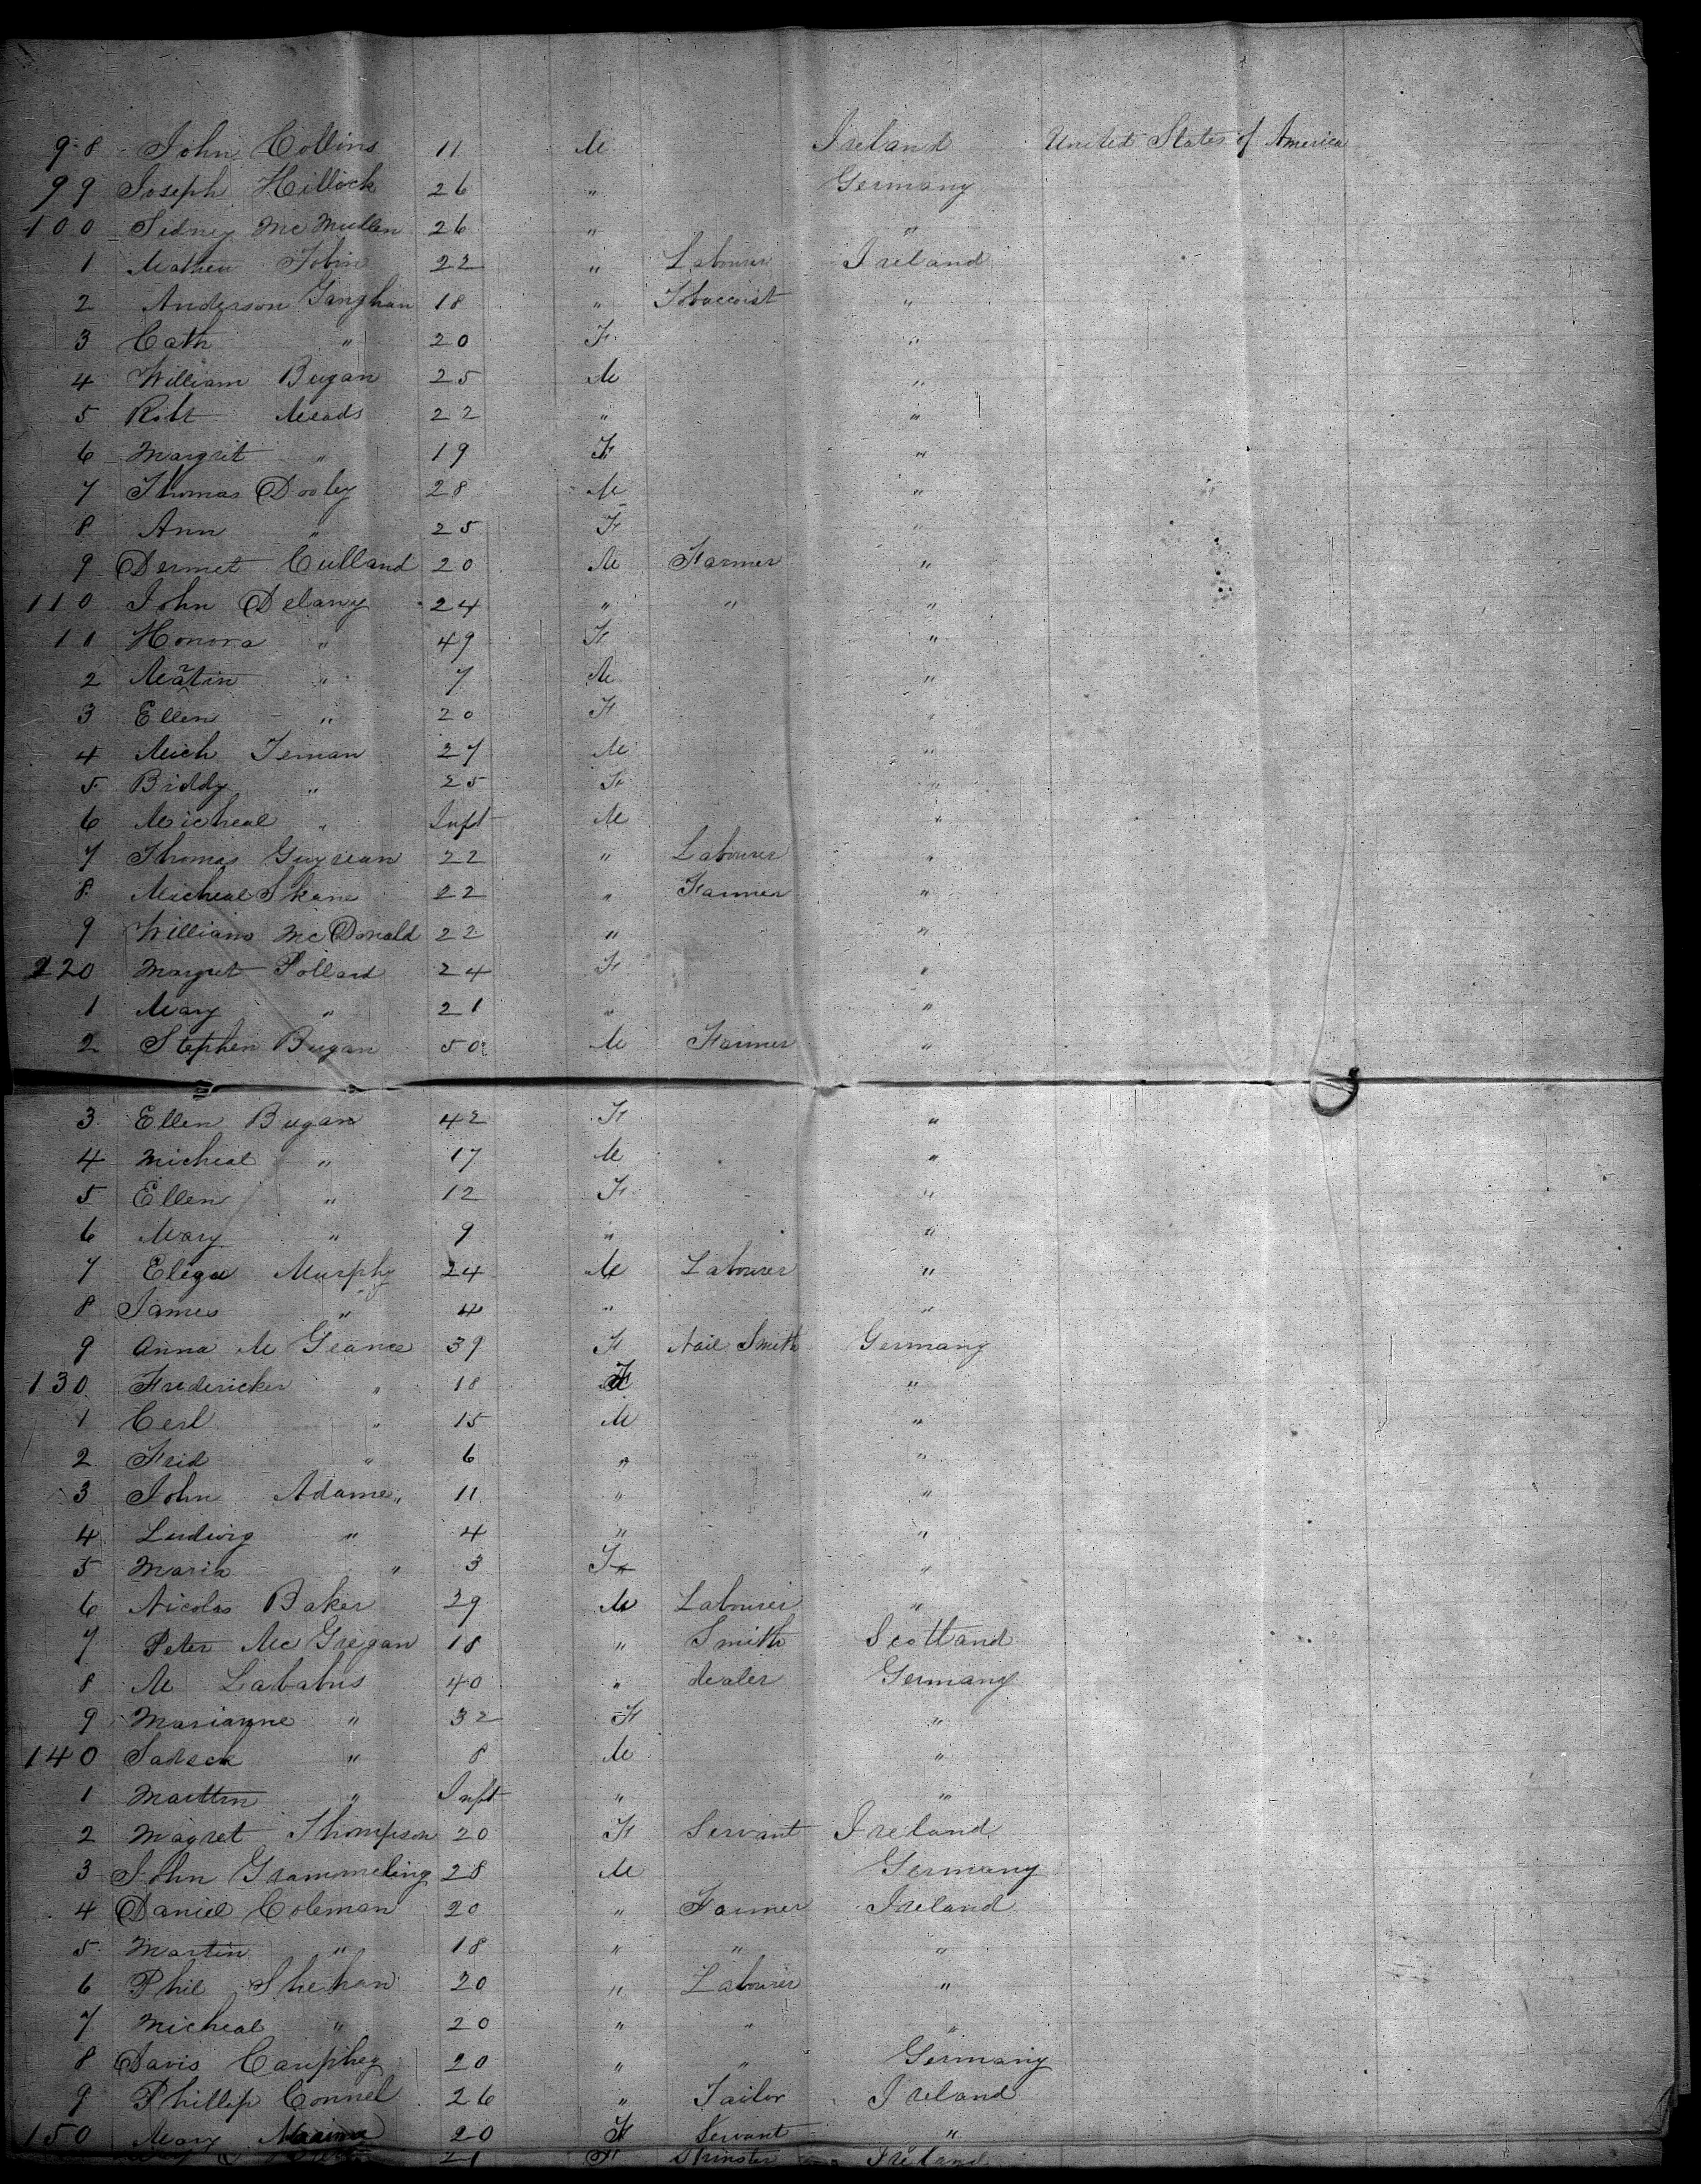 98 John Collins 11 M Ireland United States of America
99 Joseph Hillock 26 " Germany
100 Sidney McMullen 26 " "
1 Mathew Tobin 22 " Labourer Ireland
2 Anderson Ganghan 18 " Tobaccoist "
3 Cath " 20 F "
4 William Bugan 25 M "
5 Robt Meads 22 " "
6 Margrit " 19 F "
7 Thomas Dooley 28 M "
8 Ann " 25 F "
9 Dermet Culland 20 M Farmer "
110 John Delany 24 " " "
11 Honora " 49 F "
2 Martin " 7 M "
3 Ellen " 20 F "
4 Mich 27 M "
5 Biddy " 25 F "
6 Micheal " Inft M "
7 Thomas 22 " Labourer "
8 Micheal Skane 22 " Farmer "
9 William McDonald 22 " "
120 Margret Pollard 24 F "
1 Mary " 21 " "
2 Stephen Bugan 50 M Farmer "
3 Ellen Bugan 42 F "
4 Micheal " 17 M "
5 Ellen " 12 F "
6 Mary " 9 " "
7 Murphy 24 M Labourer "
8 James " 4 " "
9 Anna M Geance 39 F Nail Smith Germany
130 Fredericker " 18 F "
1 Cerl " 15 M "
2 Frid " 6 " "
3 John Adame " 11 " "
4 Ludwig " 4 " "
5 Maria " 3 F "
6 Nicolas Baker 29 M Labourer "
7 Peter McGregan 18 " Smith Scotland
8 M Lababus 40 " dealer Germany
9 Marianne " 32 F "
140 " 8 M "
1 Marttin " Inft " "
2 Magret Thompson 20 F Servant Ireland
3 John Grammeling 28 M Germany
4 Daniel Coleman 20 " Farmer Ireland
5 Martin " 18 " " "
6 Phil Shehan 20 " Labourer "
7 Micheal " 20 " " "
8 Davis Camphey 20 " " Germany
9 Phillip Connel 26 " Tailor Ireland
150 Mary 20 F Servant "
21 F Ireland